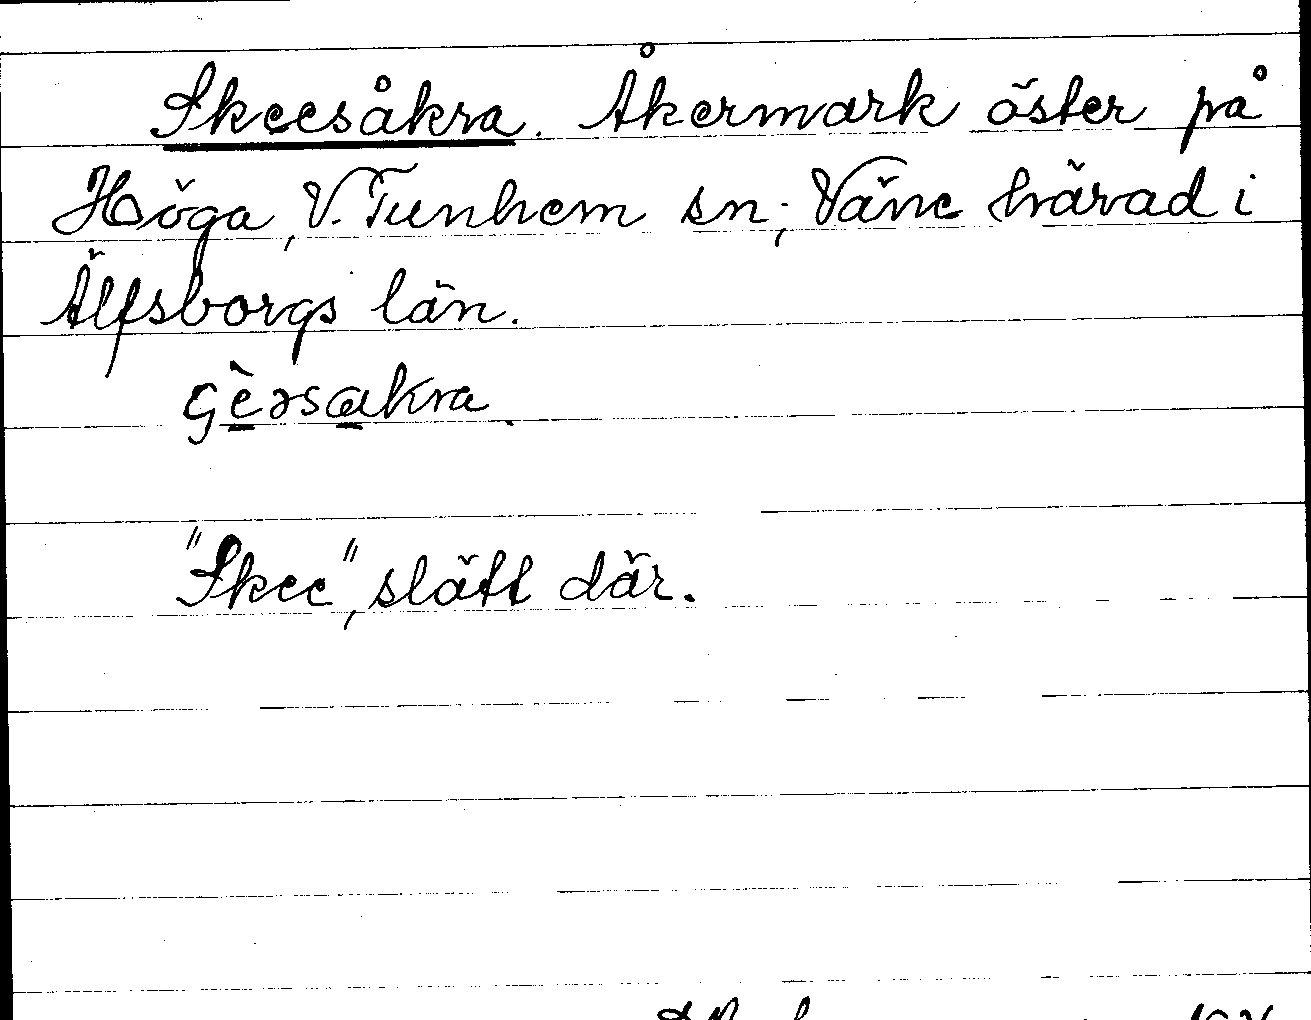 Skeesåkra. Åkermark öster på
Höga, V. Tunhem sn; Väne härad i
Älfsborgs län.
çèəsakra.
"Skee", slätt där.